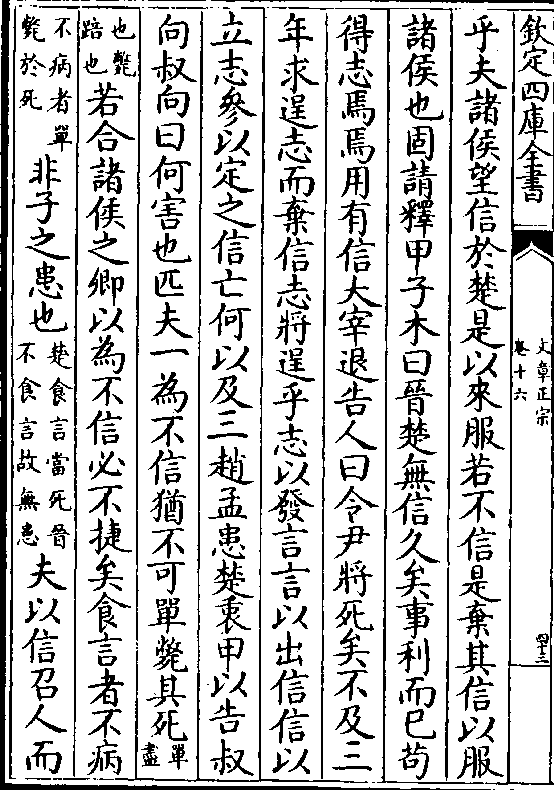 欽定四庫全書
文章正宗
卷十六
四十三
乎夫諸侯望信於楚是以來服若不信是棄其信以服
諸侯也固請釋甲子木曰晉楚無信久矣事利而已茍
得志焉焉用有信大宰退告人曰令尹將死矣不及三
年求逞志而棄信志將逞乎志以發言言以出信信以
立志參以定之信亡何以及三趙孟患楚衷甲以告叔
向叔向曰何害也匹夫一為不信猶不可單斃其死單盡
也斃踣也若合諸侯之卿以為不信必不捷矣食言者不病
不病者單斃於死非子之患也楚食言當死晉不食言故無患夫以信召人而